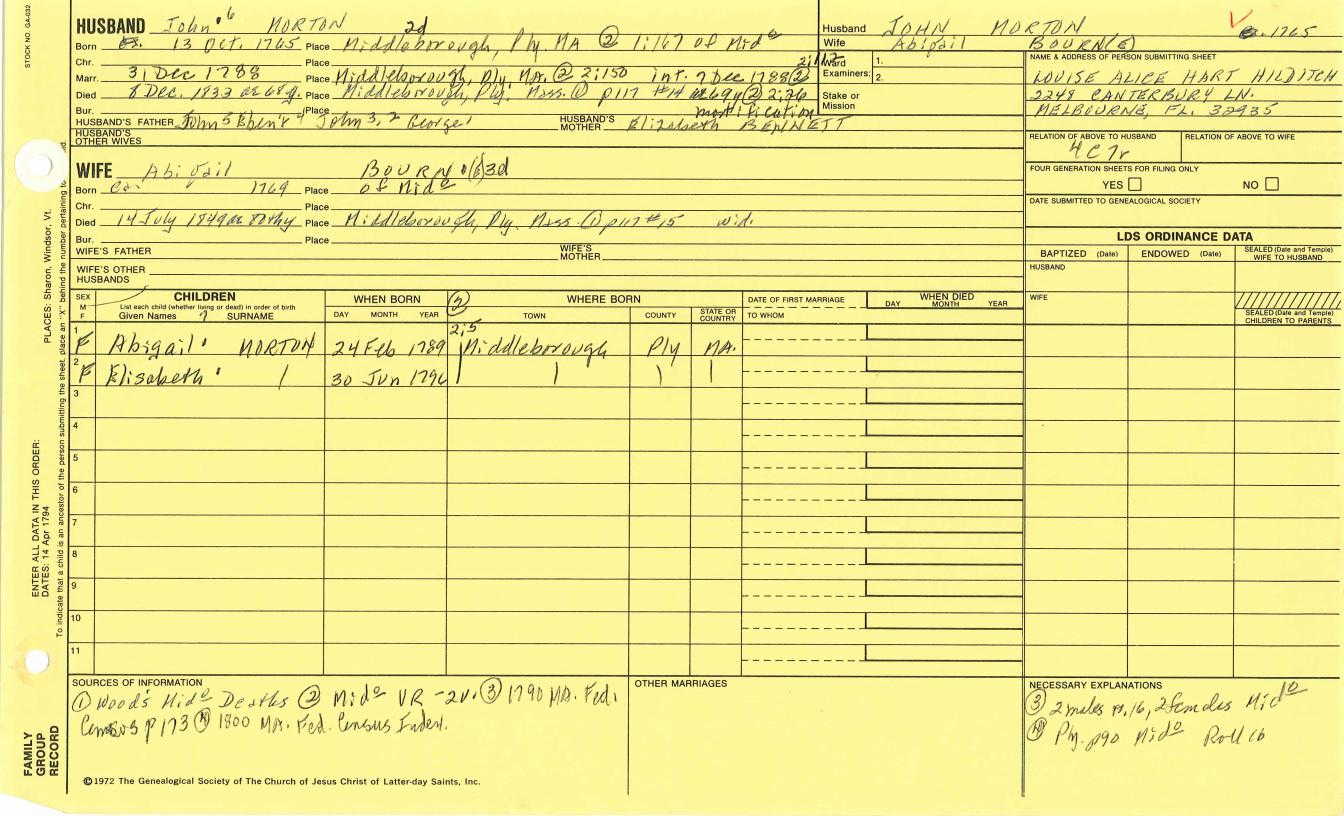 STOCK NO. GA-032
HUSBAND John 6 MORTON 2d
Born 13 Oct. 1765 Place Middleborough, Ply. MA ② 1:167 of Mido
Chr. Place
Marr. 31 Dec 1788 Place Middleborough, Ply, MA. ② 2:150 int. 7 Dec 1788 ②
Died 8 Dec. 1833 ae 68 y. Place Middleborough, Ply. Mass. ① p117 #14 ae 69y ②
Bur. Place mortification
HUSBAND'S FATHER John 5 Eben'r 4 John 3, 2 George 1 HUSBAND'S MOTHER Elizabeth BENNETT
HUSBAND'S OTHER WIVES
Husband JOHN MORTON 1765
Wife Abigail BOURN(E)
Ward
Examiners: 1.
2.
Stake or
Mission
NAME & ADDRESS OF PERSON SUBMITTING SHEET
LOUISE ALICE HART HILDITCH
2248 CANTERBURY LN.
MELBOURNE, FL. 32935
RELATION OF ABOVE TO HUSBAND RELATION OF ABOVE TO WIFE
4C7r
FOUR GENERATION SHEETS FOR FILING ONLY
YES NO
DATE SUBMITTED TO GENEALOGICAL SOCIETY
WIFE Abigail BOURN 3d
Born ca. 1769 Place of Mido
Chr. Place
Died 14 July 1849 ae Place Middleborough, Ply. Mass. ① p117 #15 wid.
Bur. Place
WIFE'S FATHER WIFE'S MOTHER
WIFE'S OTHER HUSBANDS
LDS ORDINANCE DATA
BAPTIZED (Date) ENDOWED (Date) SEALED (Date and Temple) WIFE TO HUSBAND
HUSBAND
WIFE
SEALED (Date and Temple) CHILDREN TO PARENTS
SEX M F CHILDREN
List each child (whether living or dead) in order of birth
Given Names 7 SURNAME
WHEN BORN
DAY MONTH YEAR
② WHERE BORN
TOWN COUNTY STATE OR COUNTRY
DATE OF FIRST MARRIAGE
TO WHOM
WHEN DIED
DAY MONTH YEAR
2:5
1 F Abigail MORTON 24 Feb 1789 Middleborough Ply MA.
2 F Elisabeth 30 Jun 1796
3
4
5
6
7
8
9
10
11
SOURCES OF INFORMATION
① Wood's Mido Deaths ② Mido VR -2v. ③ 1790 MA. Fed.
Census p173 ④ 1800 MA. Fed. Census Index.
OTHER MARRIAGES
NECESSARY EXPLANATIONS
③ 2 males 16, 2 females Mido
④ Ply. p90 Mido Roll 16
©1972 The Genealogical Society of The Church of Jesus Christ of Latter-day Saints, Inc.
FAMILY
GROUP
RECORD
ENTER ALL DATA IN THIS ORDER:
DATES: 14 Apr 1794
PLACES: Sharon, Windsor, Vt.
To indicate that a child is an ancestor of the person submitting the sheet, place an "X" behind the number pertaining to